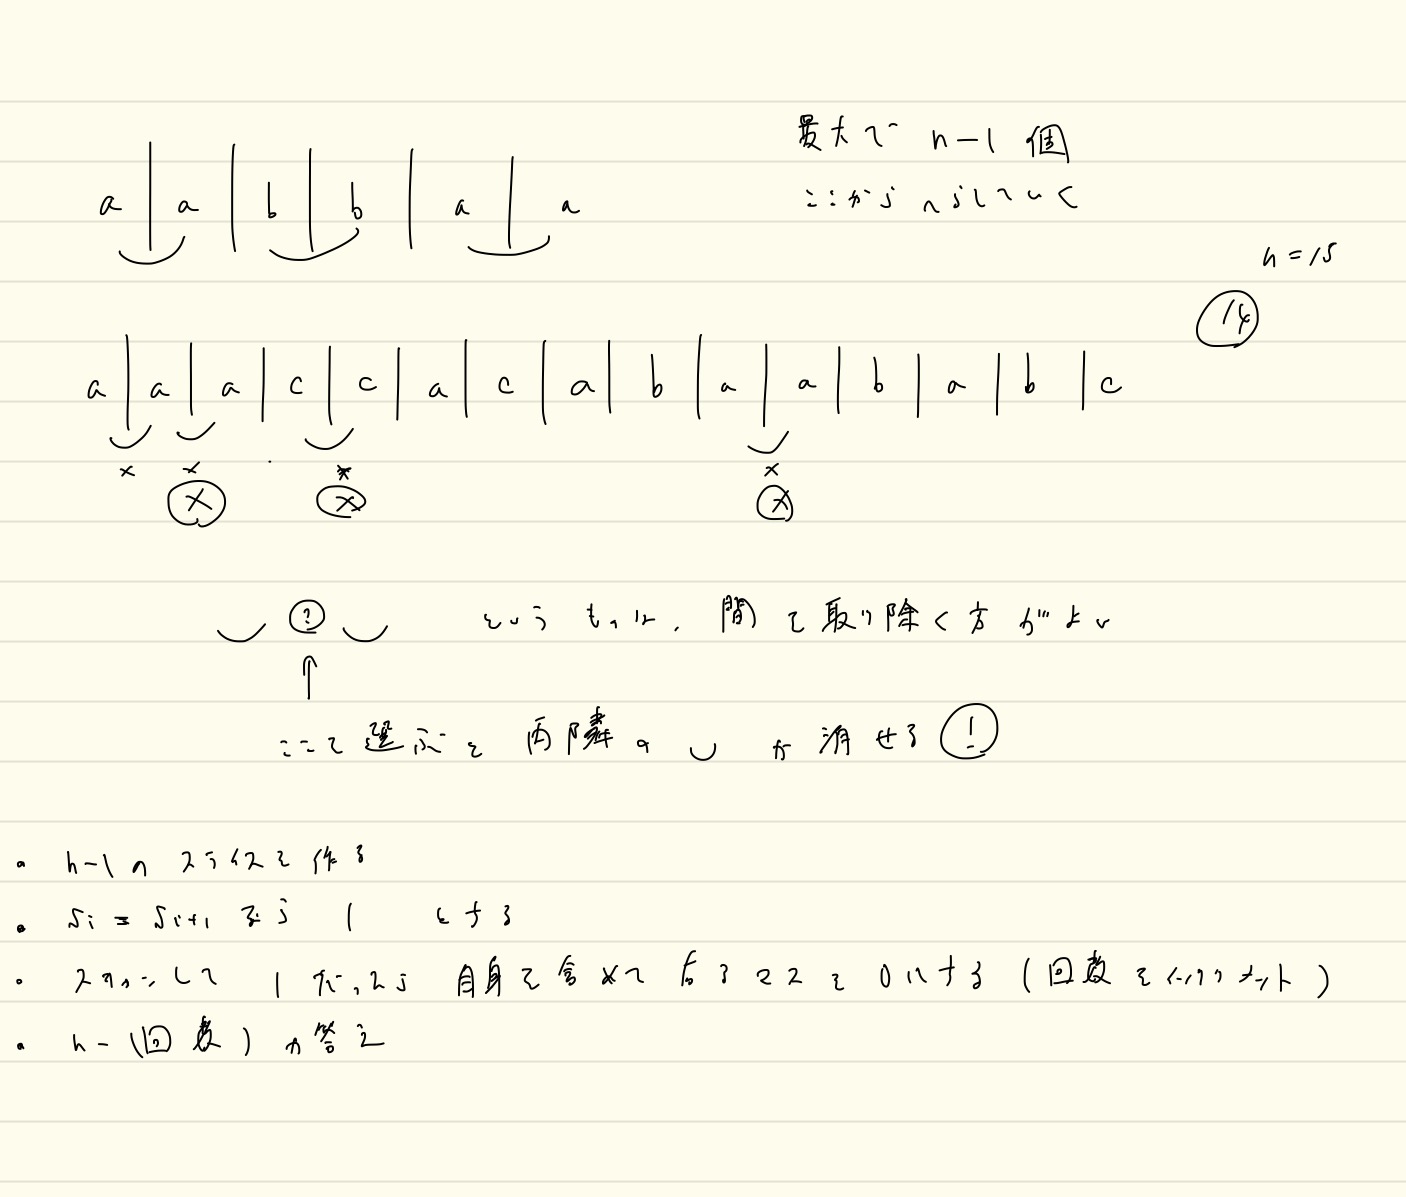 最大で n-1 個
ここからへらしていく
a | a | b | b | a | a
n = 15
14
a | a | a | c | c | a | c | a | b | a | a | b | a | b | c
x x x x
x x x
? というものは、間を取り除く方がよい
↑
ここを選ぶと両隣の ◡ が消せる !
・ n-1 の スライスを作る
・ Si = Si+1 なら 1 とする
・ スキャンして 1 だったら 自身を含めて 右3マスを 0にする (回数をインクリメント)
・ n-(回数) が答え